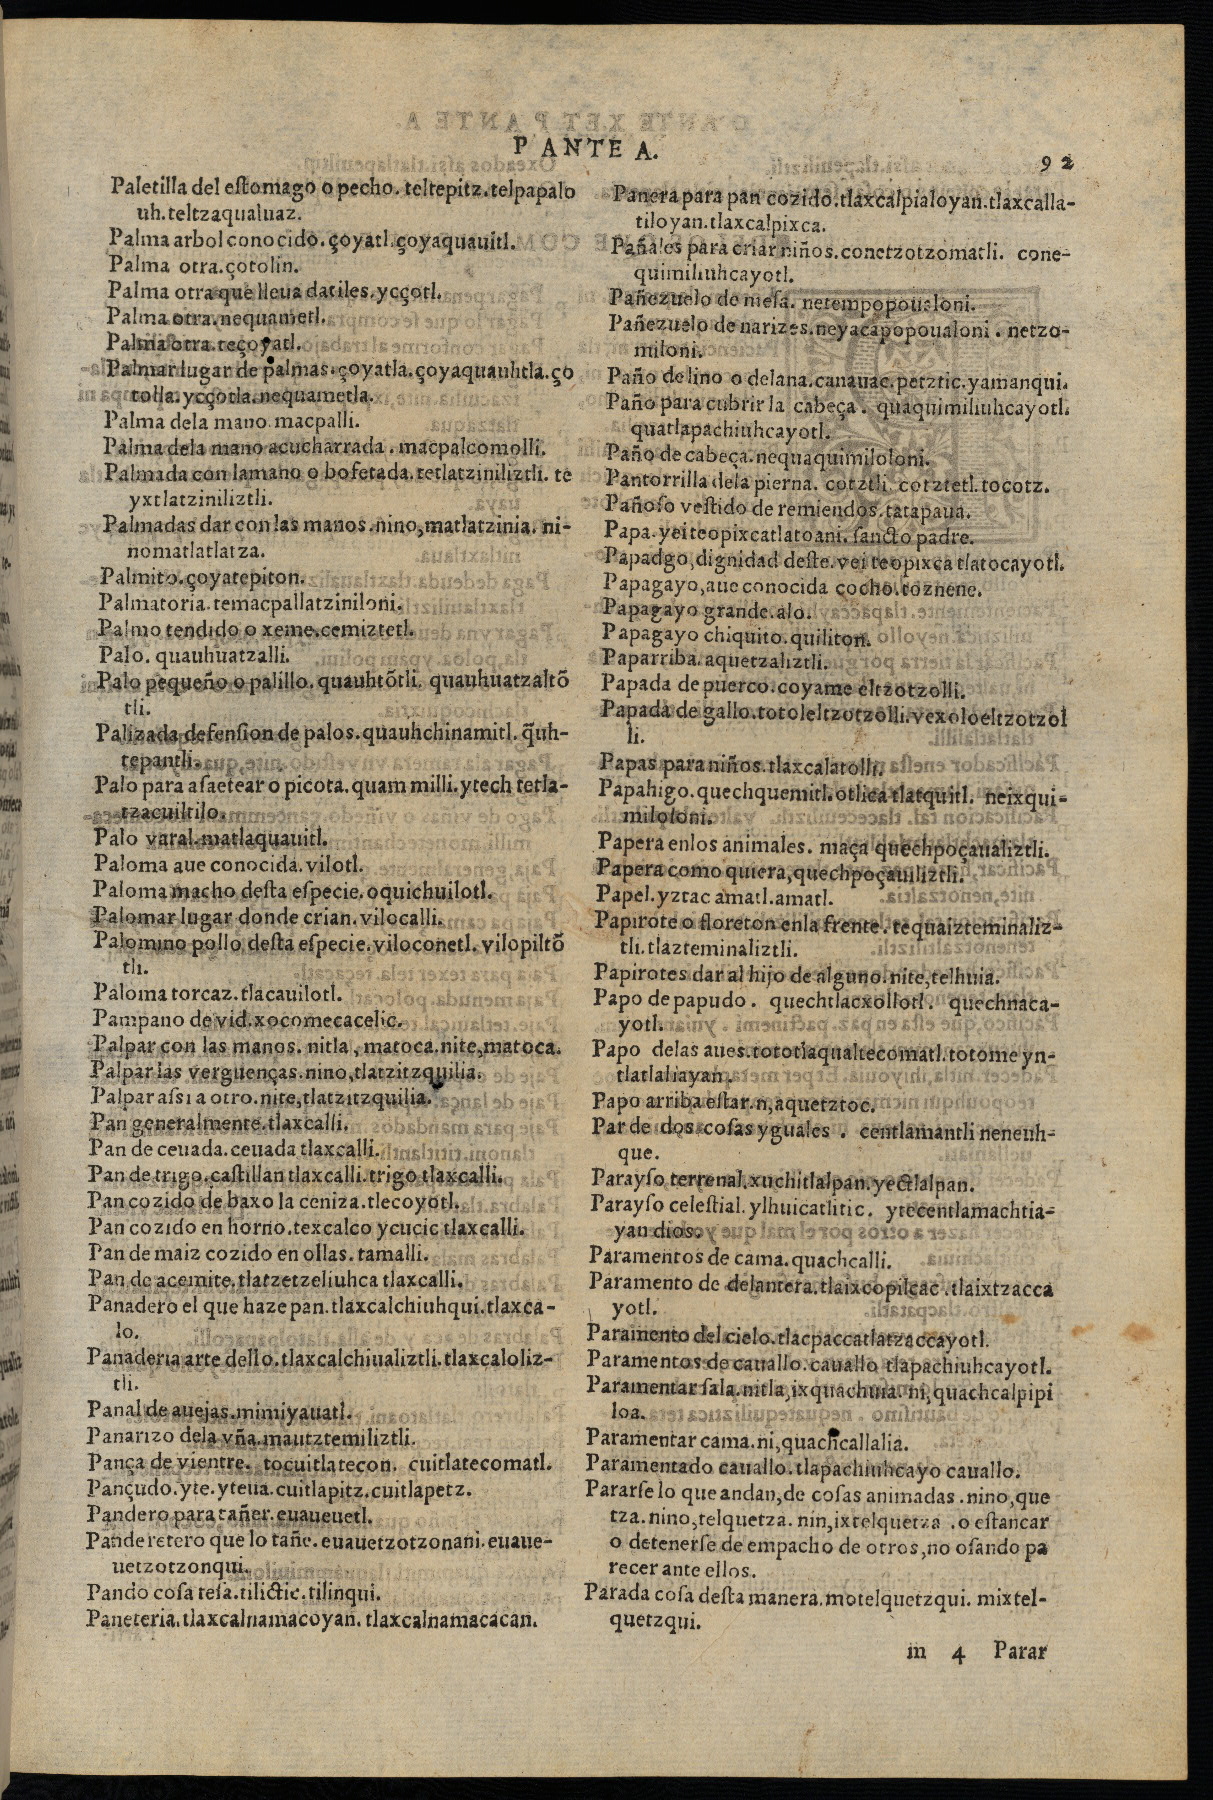 P ANTE A.
92
Paletilla del estomago o pecho. teltepitz. telpapalo
uh. teltzaqualuaz.
Palma arbol conocido. çoyatl. çoyaquauitl.
Palma otra. çotolin.
Palma otra que lleua datiles. ycçotl.
Palma otra. nequametl.
Palma otra. teçoyatl.
Palmar lugar de palmas. çoyatla. çoyaquauhtla. ço
tolla. ycçotla. nequametla.
Palma dela mano. macpalli.
Palma dela mano acucharrada. macpalcomolli.
Palmada con la mano o bofetada. tetlatziniliztli. te
yxtlatziniliztli.
Palmadas dar con las manos. nino, matlatzinia. ni-
nomatlatlatza.
Palmito. çoyatepiton.
Palmatoria. temacpallatziniloni.
Palmo tendido o xeme. cemiztetl.
Palo. quauhuatzalli.
Palo pequeño o palillo. quauhtõtli. quauhuatzaltõ
tli.
Palizada defension de palos. quauhchinamitl. q̃uh-
tepantli.
Palo para asaetear o picota. quammilli. ytech tetla-
tzacuiltilo.
Palo varal. matlaquauitl.
Paloma aue conocida. vilotl.
Paloma macho desta especie. oquichuilotl.
Palomar lugar donde crian. vilocalli.
Palomino pollo desta especie. viloconetl. vilopiltõ
tli.
Paloma torcaz. tlacauilotl.
Pampano de vid. xocomecacelic.
Palpar con las manos. nitla, matoca. nite, matoca.
Palpar las verguenças. nino, tlatzitzquilia.
Palpar assi a otro. nite, tlatzitzquilia.
Pan generalmente. tlaxcalli.
Pan de ceuada. ceuada tlaxcalli.
Pan de trigo. castillan tlaxcalli. trigo tlaxcalli.
Pan cozido de baxo la ceniza. tlecoyotl.
Pan cozido en horno. texcalco ycucic tlaxcalli.
Pan de maiz cozido en ollas. tamalli.
Pan de acemite. tlatzetzeliuhca tlaxcalli.
Panadero el que haze pan. tlaxcalchiuhqui. tlaxca-
lo.
Panaderia arte dello. tlaxcalchiualiztli. tlaxcaloliz-
tli.
Panal de auejas. mimiyauatl.
Panarizo dela vña. mautztemiliztli.
Pança de vientre. tocuitlatecon. cuitlatecomatl.
Pançudo. yte. yteua. cuitlapitz. cuitlapetz.
Pandero para tañer. euaueuetl.
Panderetero que lo tañe. euauetzotzonani. euaue-
uetzotzonqui.
Pando cosa tesa. tilictic. tilinqui.
Paneteria. tlaxcalnamacoyan. tlaxcalnamacacan.
Panera para pan cozido. tlaxcalpialoyan. tlaxcalla-
tiloyan. tlaxcalpixca.
Pañales para criar niños. conetzotzomatli. cone-
quimiliuhcayotl.
Pañezuelo de mesa. netempopoualoni.
Pañezuelo de narizes. neyacapopoualoni. netzo-
miloni.
Paño de lino o de lana. canauac. petztic. yamanqui.
Paño para cubrir la cabeça. quaquimiliuhcayotl.
quatlapachiuhcayotl.
Paño de cabeça. nequaquimiloloni.
Pantorrilla dela pierna. cotztli. cotztetl. tocotz.
Pañoso vestido de remiendos. tatapaua.
Papa. yei teopixcatlatoani. sancto padre.
Papadgo, dignidad deste. vei teopixca tlatocayotl.
Papagayo, aue conocida cocho. toznene.
Papagayo grande. alo.
Papagayo chiquito. quiliton.
Paparriba. aquetzaliztli.
Papada de puerco. coyame eltzotzolli.
Papada de gallo. totoleltzotzolli. vexoloeltzotzol
li.
Papas para niños. tlaxcalatolli.
Papahigo. quechquemitl. otlica tlatquitl. neixqui-
miloloni.
Papera en los animales. maça quechpoçaualiztli.
Papera como quiera, quechpoçauiliztli.
Papel. yztac amatl. amatl.
Papirote o floreton en la frente. tequaizteminaliz-
tli. tlazteminaliztli.
Papirotes dar al hijo de alguno. nite, telhuia.
Papo de papudo. quechtlacxollotl. quechnaca-
yotl.
Papo delas aues. tototlaqualtecomatl. totome yn-
tlatlaliayan.
Papo arriba estar. n, aquetztoc.
Par de dos cosas yguales. centlamantli neneuh-
que.
Parayso terrenal. xuchitlalpan. yectlalpan.
Parayso celestial. ylhuicatlitic. ytecentlamachtia-
yan dios.
Paramentos de cama. quachcalli.
Paramento de delantera. tlaixcopilcac. tlaixtzacca
yotl.
Paramento del cielo. tlacpaccatlatzaccayotl.
Paramentos de cauallo. cauallo tlapachiuhcayotl.
Paramentar sala. nitla, ixquachuia. ni, quachcalpipi
loa.
Paramentar cama. ni, quachcallalia.
Paramentado cauallo. tlapachiuhcayo cauallo.
Pararse lo que andan, de cosas animadas. nino, que
tza. nino, telquetza. nin, ixtelquetza. o estancar
o detenerse de empacho de otros, no osando pa
recer ante ellos.
Parada cosa desta manera. motelquetzqui. mixtel-
quetzqui.
m 4 Parar